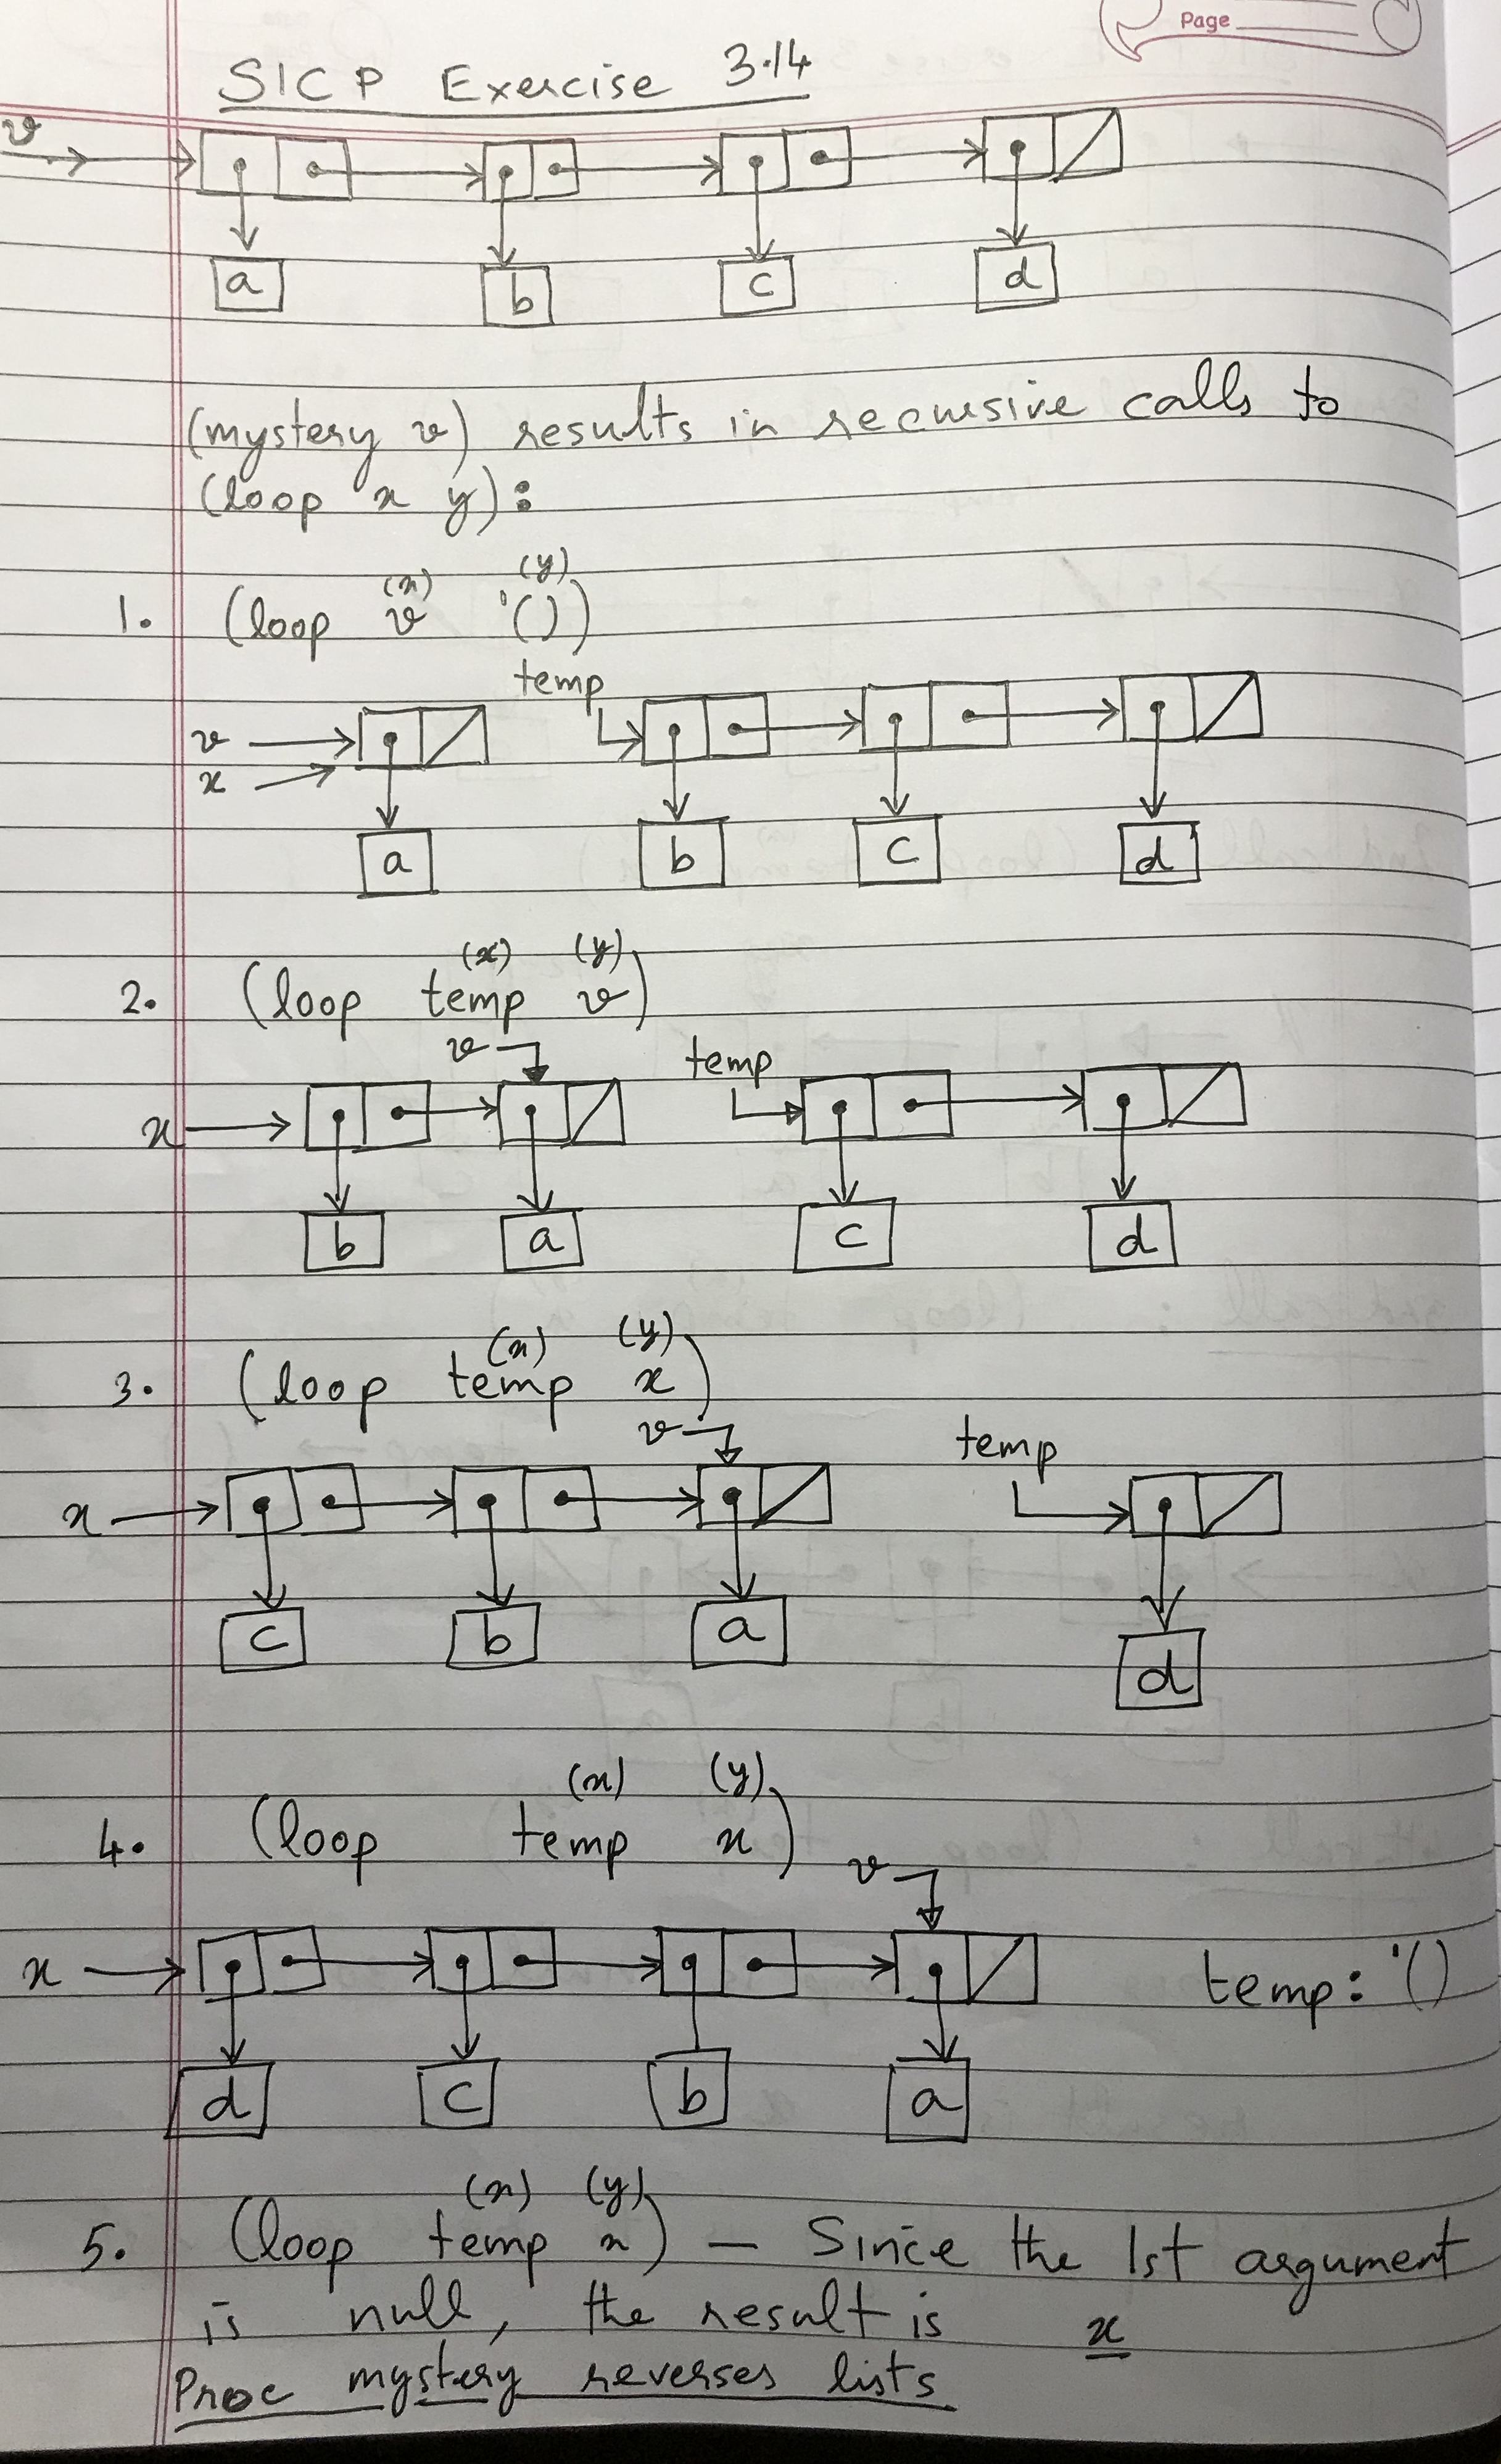 Page
SICP Exercise 3.14
v
a b c d
(mystery v) results in recursive calls to
(loop x y):
(x) (y)
1. (loop v '())
temp
v
x
a b c d
(x) (y)
2. (loop temp v)
v temp
x
b a c d
(x) (y)
3. (loop temp x)
v temp
x
c b a d
(x) (y)
4. (loop temp x)
v
x temp: '()
d c b a
(x) (y)
5. (loop temp x) — Since the 1st argument
is null, the result is x
Proc mystery reverses lists